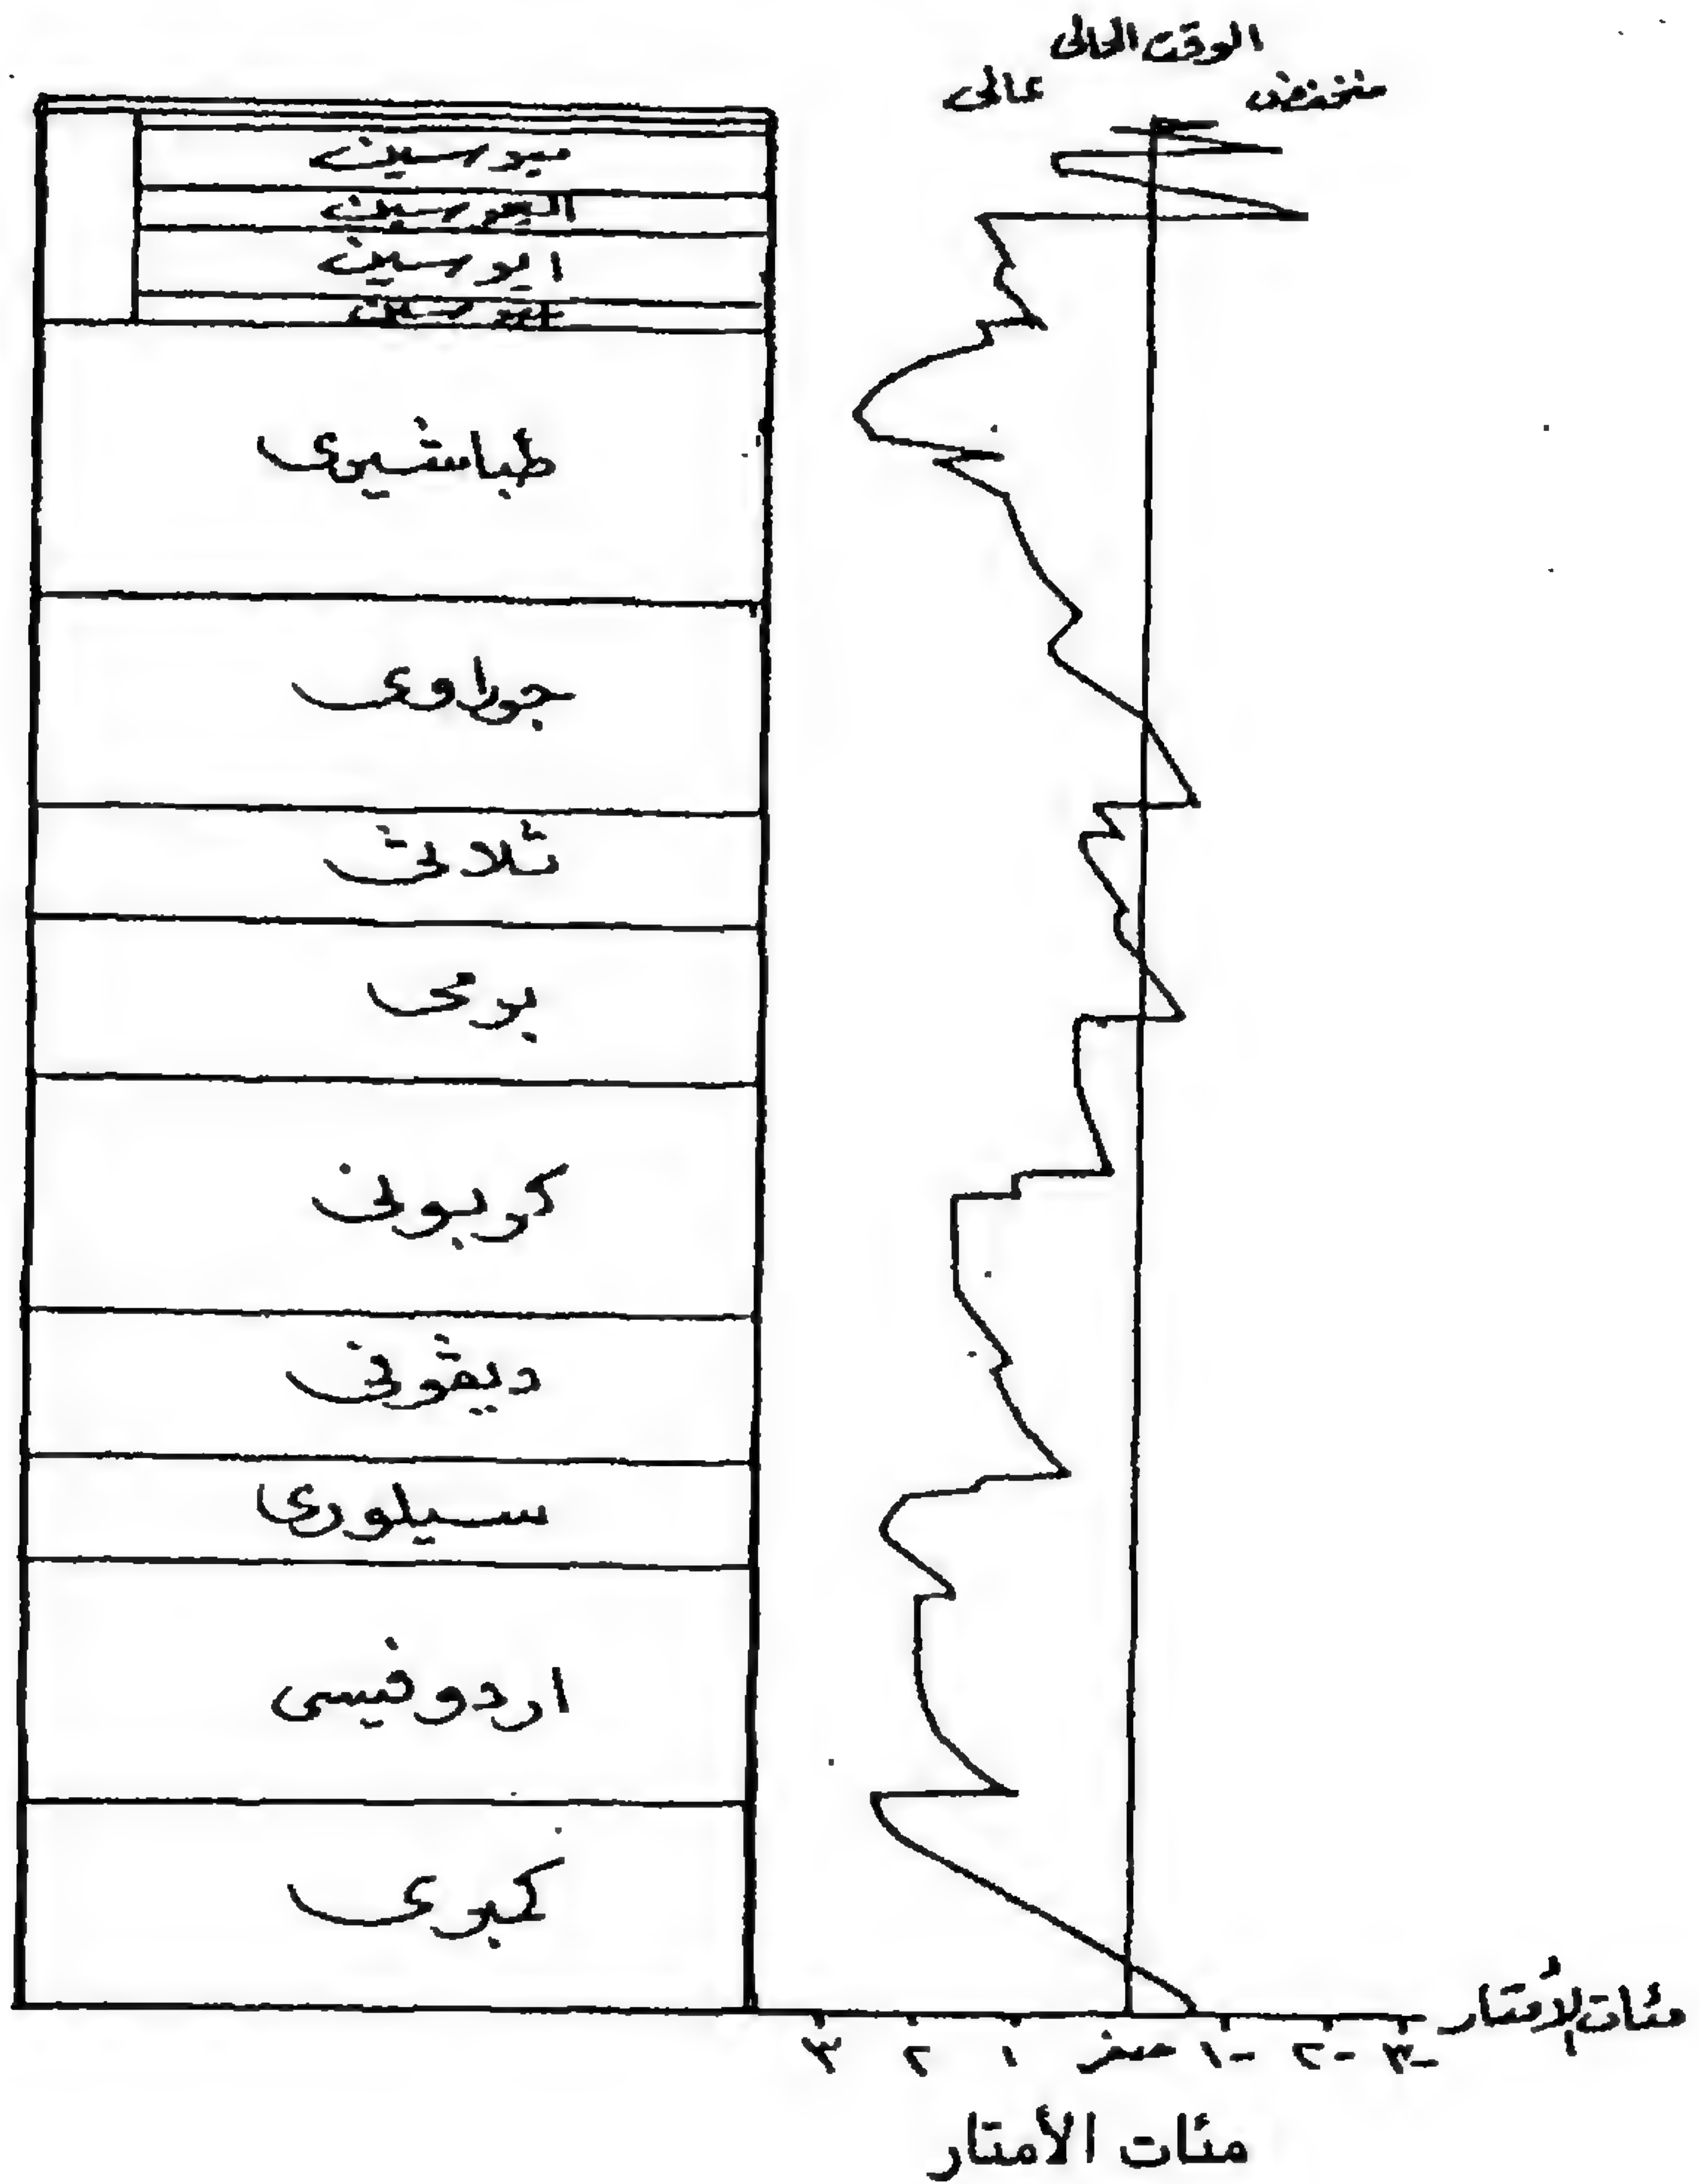 الوقت الحالى
عالى
منخفض
ميوسين
اليجوسين
ايوسين
طباشيرى
جوراوى
ثلاثى
برمى
كربونى
ديڤونى
سيلورى
اردوفيسى
كمبرى
مئات الأمتار
٣ ٢ ١ صفر ١- ٢- ٣-
مئات الأمتار